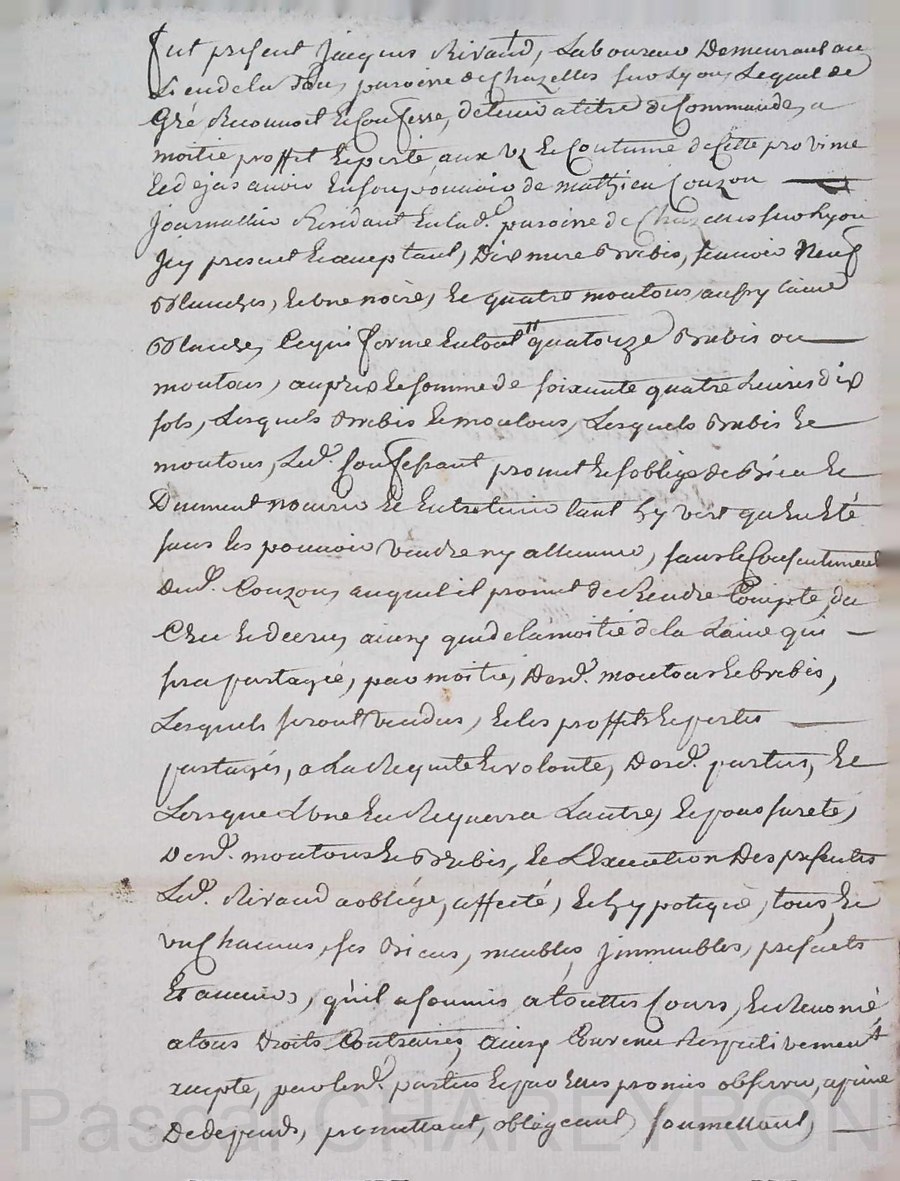 fut present Jacques Rivaud, Laboureur Demeurant au
Lieu de la paroisse de Chazelles sur Lyon, Lequel de
Gré Reconnoit et Confesse, detenir a titre de Commande, a
moitié proffit et perte, aux us et Coutume de Cette province
et deja avoir en son pouvoir de mathieu Couzon
journallier Residant en lad. paroisse de Chazelles sur Lyon
jcy present et acceptant, Dix mere Brebis, scavoir Neuf
Blanches, et une noire, et quatre moutons, aussy laine
Blanche, Ce qui forme en tout quatorze Brebis ou
moutons, au prix et somme de soixante quatre Livres dix
sols, Lesquels Brebis et moutons, Lesquels Brebis et
moutons, Led. Confessant promet et s'oblige de Bien et
Duement nourrir et Entretenir tant hyvert qu'en Eté
sans les pouvoir vendre ny allienner, sans le Consentement
Dud. Couzon, auquel il promet de Rendre Compte, du
Cru et decru, ainsy que de la moitié de la Laine qui
sera partagée, par moitié, Desd. moutons et brebis,
Lesquels seront vendus, et les proffits et pertes
partagés, a La Requete et volonté, Desd. parties, et
Lorsque L'une En Requerra L'autre, et pour sureté,
Desd. moutons et Brebis, et L'Execution Des presentes
Led. Rivaud a obligé, affecté, et hypotequé, tous, et
un Chacuns, ses Biens, meubles, jmmeubles, presents
Et avenirs, qu'il a soumis a touttes Cours, et Renoncé
a tous Droits Contraires, ainsy Convenu Respectivement
accepté, par lesd. parties et par Eux promis observer, a peine
De depends, promettant, obligeant, soumettant,
Pascal CHAREYRON